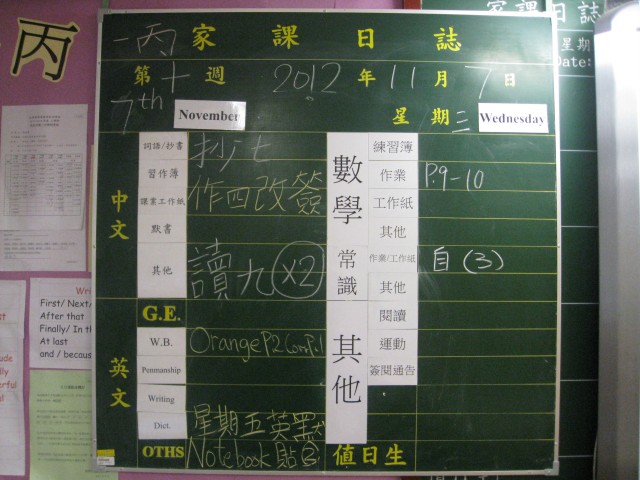 丙
一丙 家課日誌
第十週 2012年11月7日
7th November 星期三 Wednesday
中文
詞語/抄書 抄七
習作簿 作四改簽
讀業工作紙
默書
其他 讀九 (x2)
數學
練習簿
作業 P.9-10
工作紙
其他
常識
作業/工作紙 自 (3)
其他
英文
G.E.
W.B. Orange P.2
Penmanship
Writing
Dict. 星期五英默
OTHS Notebook 貼③
其他
閱讀
運動
簽閱通告
值日生
家課日誌
星期
Date:
First/ Next/
After that
Finally/ In th
At last
and / becaus